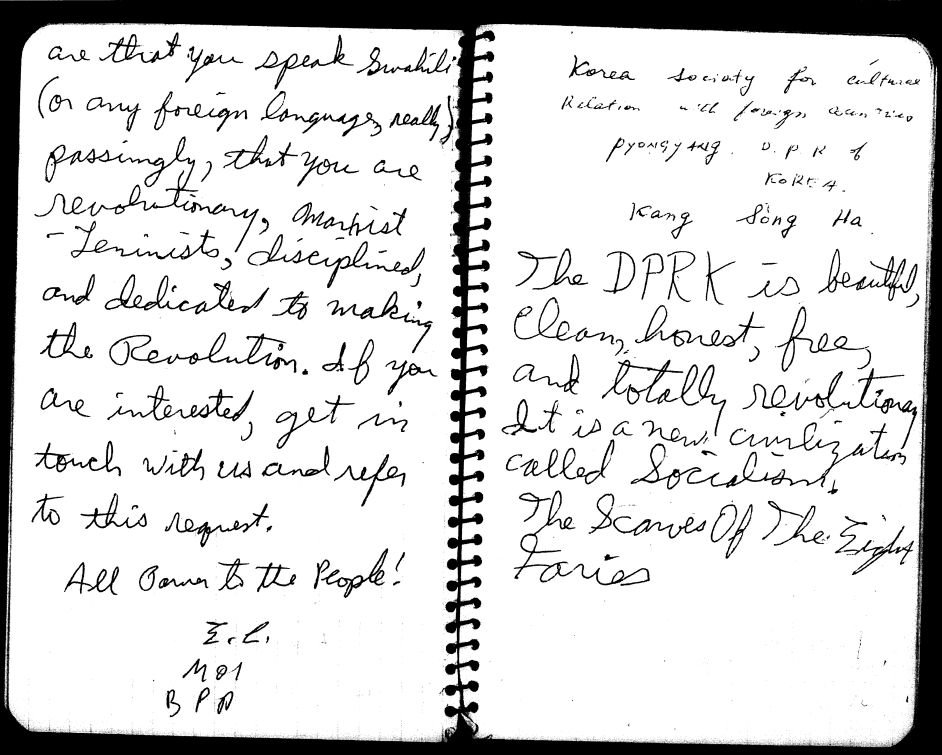 are that you speak Swahili
(or any foreign languages, really)
passingly, that you are
revolutionary, Marxist
-Leninists, disciplined,
and dedicated to making
the Revolution. If you
are interested, get in
touch with us and refer
to this request.
All Power to the People!
E.C.
MOI
BPP
Korea Society for cultural
Relation with foreign countries
PYONGYANG. D.P.R of
KOREA.
Kang Song Ha.
The DPRK is beautiful,
clean, honest, free,
and totally revolutionary
It is a new civilization
called Socialism.
The Scarves Of The Eight
Faries